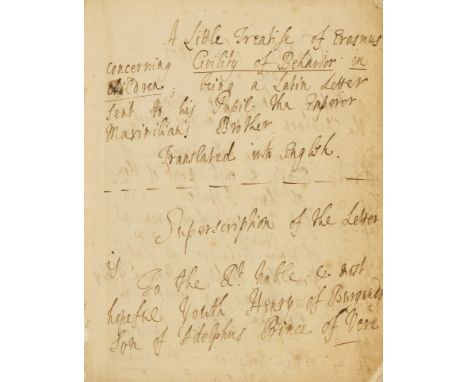 A Little Treatise of Erasmus
concerning Civility of Behavior in
Children, being a Latin Letter
sent to his Pupil the Emperor
Maximilians Brother
Translated into English.
Superscription of the Letter
is.
To the Rt. Noble & most
hopeful Youth Henry of Burgundy
Son of Adolphus Prince of Vere